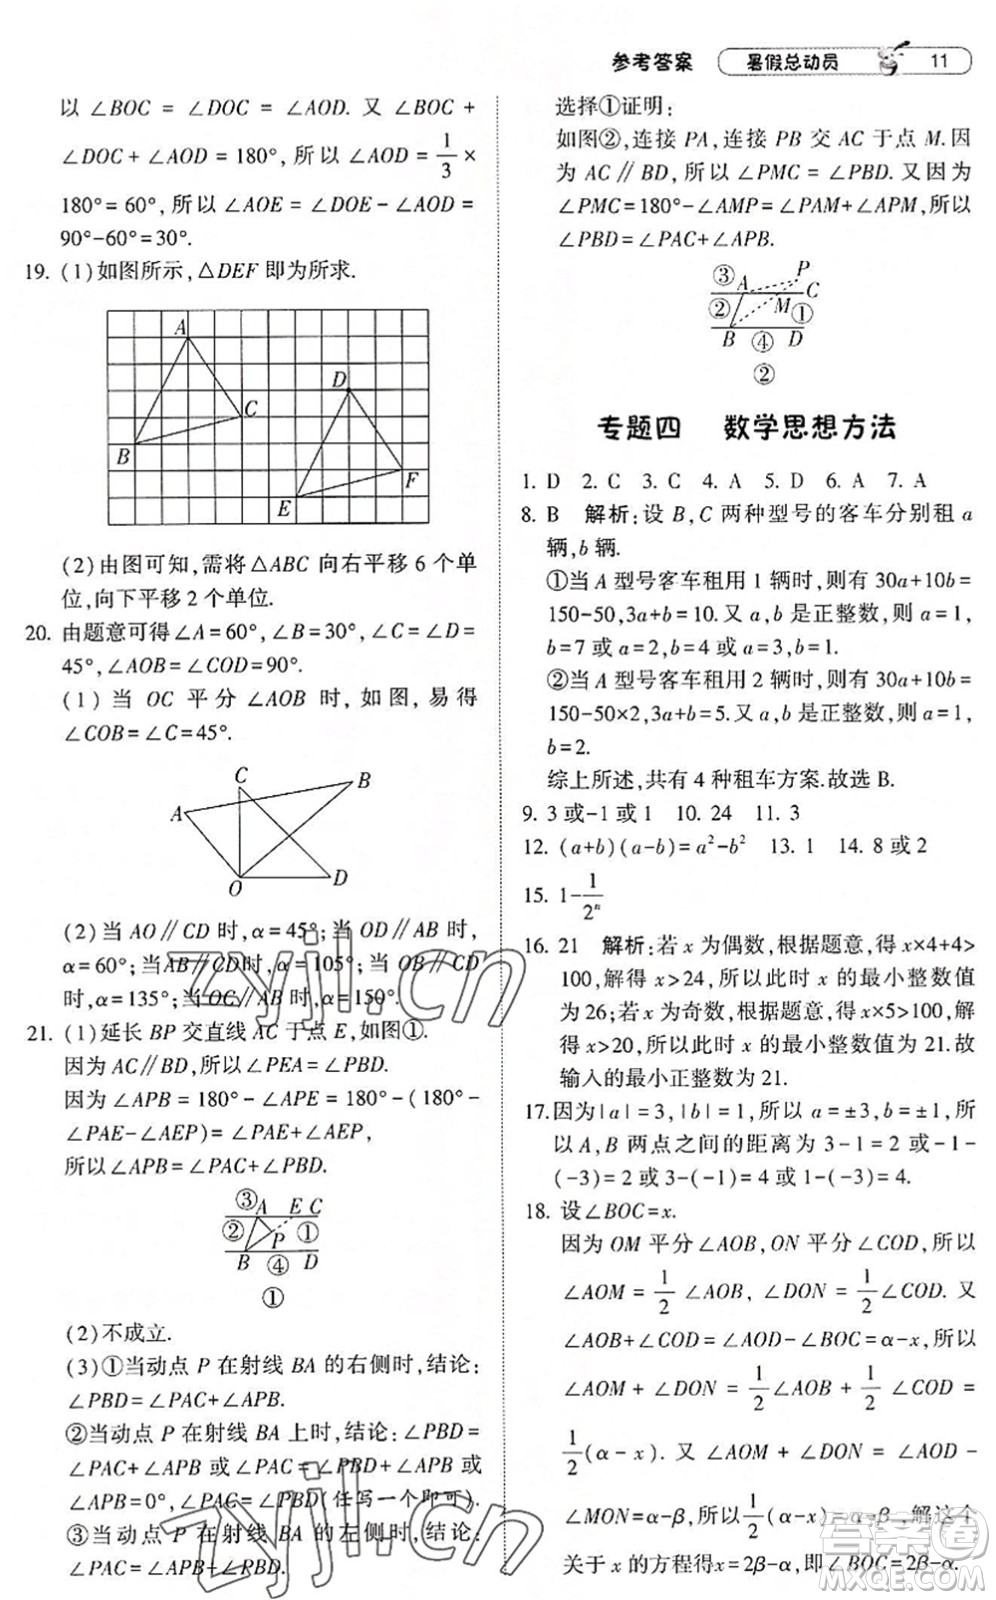 参考答案 暑假总动员 11
以 ∠BOC = ∠DOC = ∠AOD. 又 ∠BOC +
∠DOC+ ∠AOD = 180°, 所以 ∠AOD = 1/3 ×
180°=60°, 所以 ∠AOE = ∠DOE- ∠AOD =
90°-60°=30°.
19. (1)如图所示,△DEF 即为所求.
A
D
C
B
F
E
(2)由图可知,需将△ABC 向右平移 6 个单
位,向下平移 2 个单位.
20. 由题意可得∠A=60°,∠B=30°,∠C=∠D=
45°,∠AOB=∠COD=90°.
(1) 当 OC 平分∠AOB 时, 如图, 易得
∠COB=∠C=45°.
C
B
A
O
D
(2)当 AO∥CD 时,α=45°;当 OD∥AB 时,
α=60°;当AB∥CD时,α=105°;当 OB∥CD
时,α=135°;当OC∥AB 时,α=150°.
21. (1)延长 BP 交直线 AC 于点 E,如图①.
因为 AC∥BD,所以∠PEA=∠PBD.
因为 ∠APB = 180°-∠APE = 180°-(180°-
∠PAE-∠AEP)=∠PAE+∠AEP,
所以∠APB=∠PAC+∠PBD.
③ A E C
② P ①
B ④ D
①
(2)不成立.
(3)①当动点 P 在射线 BA 的右侧时,结论:
∠PBD=∠PAC+∠APB.
②当动点 P 在射线 BA 上时,结论:∠PBD =
∠PAC + ∠APB 或 ∠PAC = ∠PBD + ∠APB 或
∠APB=0°,∠PAC=∠PBD(任写一个即可).
③当动点 P 在射线 BA 的左侧时,结论:
∠PAC=∠APB+∠PBD.
选择①证明:
如图②,连接 PA,连接 PB 交 AC 于点 M.因
为 AC∥BD,所以∠PMC=∠PBD.又因为
∠PMC=180°-∠AMP=∠PAM+∠APM,所以
∠PBD=∠PAC+∠APB.
③ A P C
② M ①
B ④ D
②
专题四 数学思想方法
1. D 2. C 3. C 4. A 5. D 6. A 7. A
8. B 解析:设 B,C 两种型号的客车分别租 a
辆,b 辆.
①当 A 型号客车租用 1 辆时,则有 30a+10b=
150-50,3a+b=10.又 a,b 是正整数,则 a=1,
b=7 或 a=2,b=4 或 a=3,b=1.
②当 A 型号客车租用 2 辆时,则有 30a+10b=
150-50×2,3a+b=5.又 a,b 是正整数,则 a=1,
b=2.
综上所述,共有 4 种租车方案.故选 B.
9. 3 或-1 或 1 10. 24 11. 3
12. (a+b)(a-b)=a²-b² 13. 1 14. 8 或 2
15. 1-1/2ⁿ
16. 21 解析:若 x 为偶数,根据题意,得 x×4+4>
100,解得 x>24,所以此时 x 的最小整数值
为 26;若 x 为奇数,根据题意,得 x×5>100,解
得 x>20,所以此时 x 的最小整数值为 21.故
输入的最小正整数为 21.
17.因为|a|=3,|b|=1,所以 a=±3,b=±1,所
以 A,B 两点之间的距离为 3-1=2 或-1-
(-3)=2 或 3-(-1)=4 或 1-(-3)=4.
18. 设∠BOC=x.
因为 OM 平分∠AOB,ON 平分∠COD,所以
∠AOM = 1/2 ∠AOB, ∠DON = 1/2 ∠COD. 又
∠AOB+∠COD=∠AOD-∠BOC=α-x,所以
∠AOM + ∠DON = 1/2 ∠AOB + 1/2 ∠COD =
1/2 (α-x). 又 ∠AOM + ∠DON = ∠AOD -
∠MON=α-β,所以 1/2 (α-x)=α-β,解这个
关于 x 的方程得x=2β-α,即∠BOC=2β-α.
zyjl.cn
zyjl.cn
答案圈
MXQE.COM